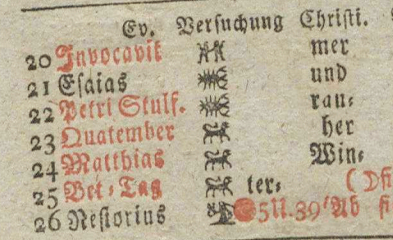 Ev. Versuchung Christi.
20 Invocavit mer
21 Esaias und
22 Petri Stulf. rau⸗
23 Quatember her
24 Matthias Win⸗
25 Bet⸗Tag ter⸗
26 Nestorius 5U.39'Ab